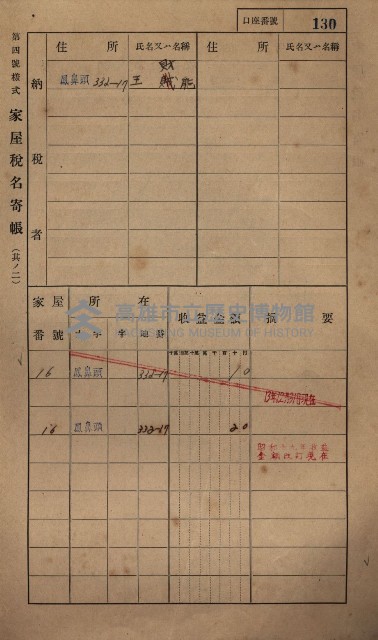 口座番號 130
第四號樣式 家屋稅名寄帳 (其ノ二)
納稅者
住所 氏名又ハ名稱 住所 氏名又ハ名稱
財
鳳鼻頭 332-17 王
家屋番號 所在 收益金額 摘要
大字 字 地番
高雄市立歷史博物館
KAOHSIUNG MUSEUM OF HISTORY
16 鳳鼻頭 332-17 10
16 鳳鼻頭 332-17 20